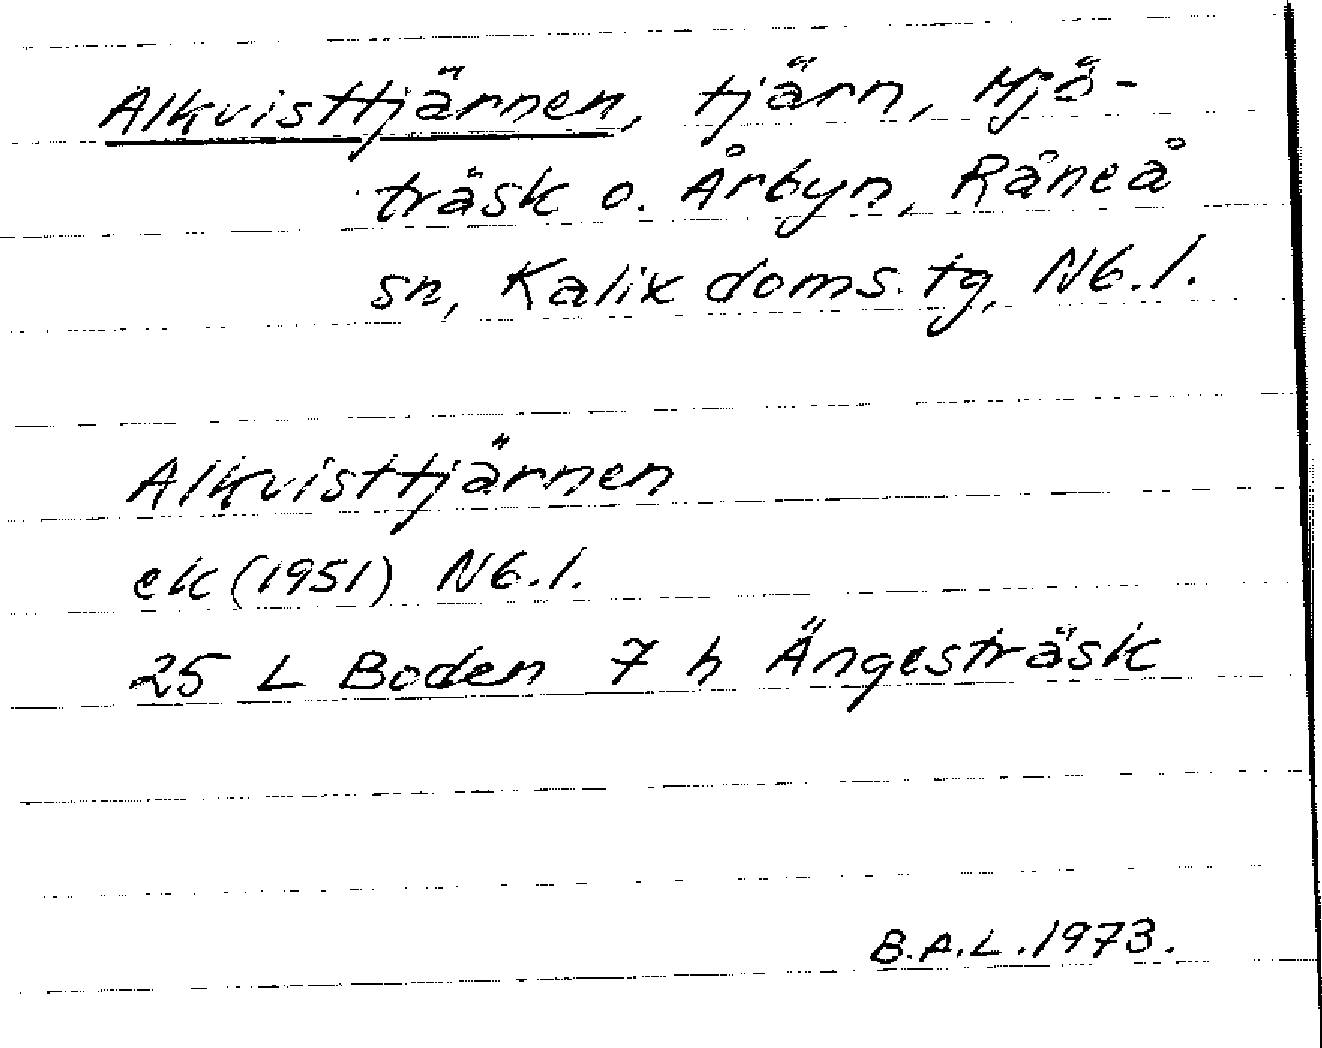 Alkvisttjärnen, tjärn, Mjö-
träsk o. Årbyn, Råneå
sn, Kalix doms. tg, Nb. l.
Alkvisttjärnen
ek (1951) Nb. l.
25 L Boden 7 h Ängesträsk
B.A.L. 1973.